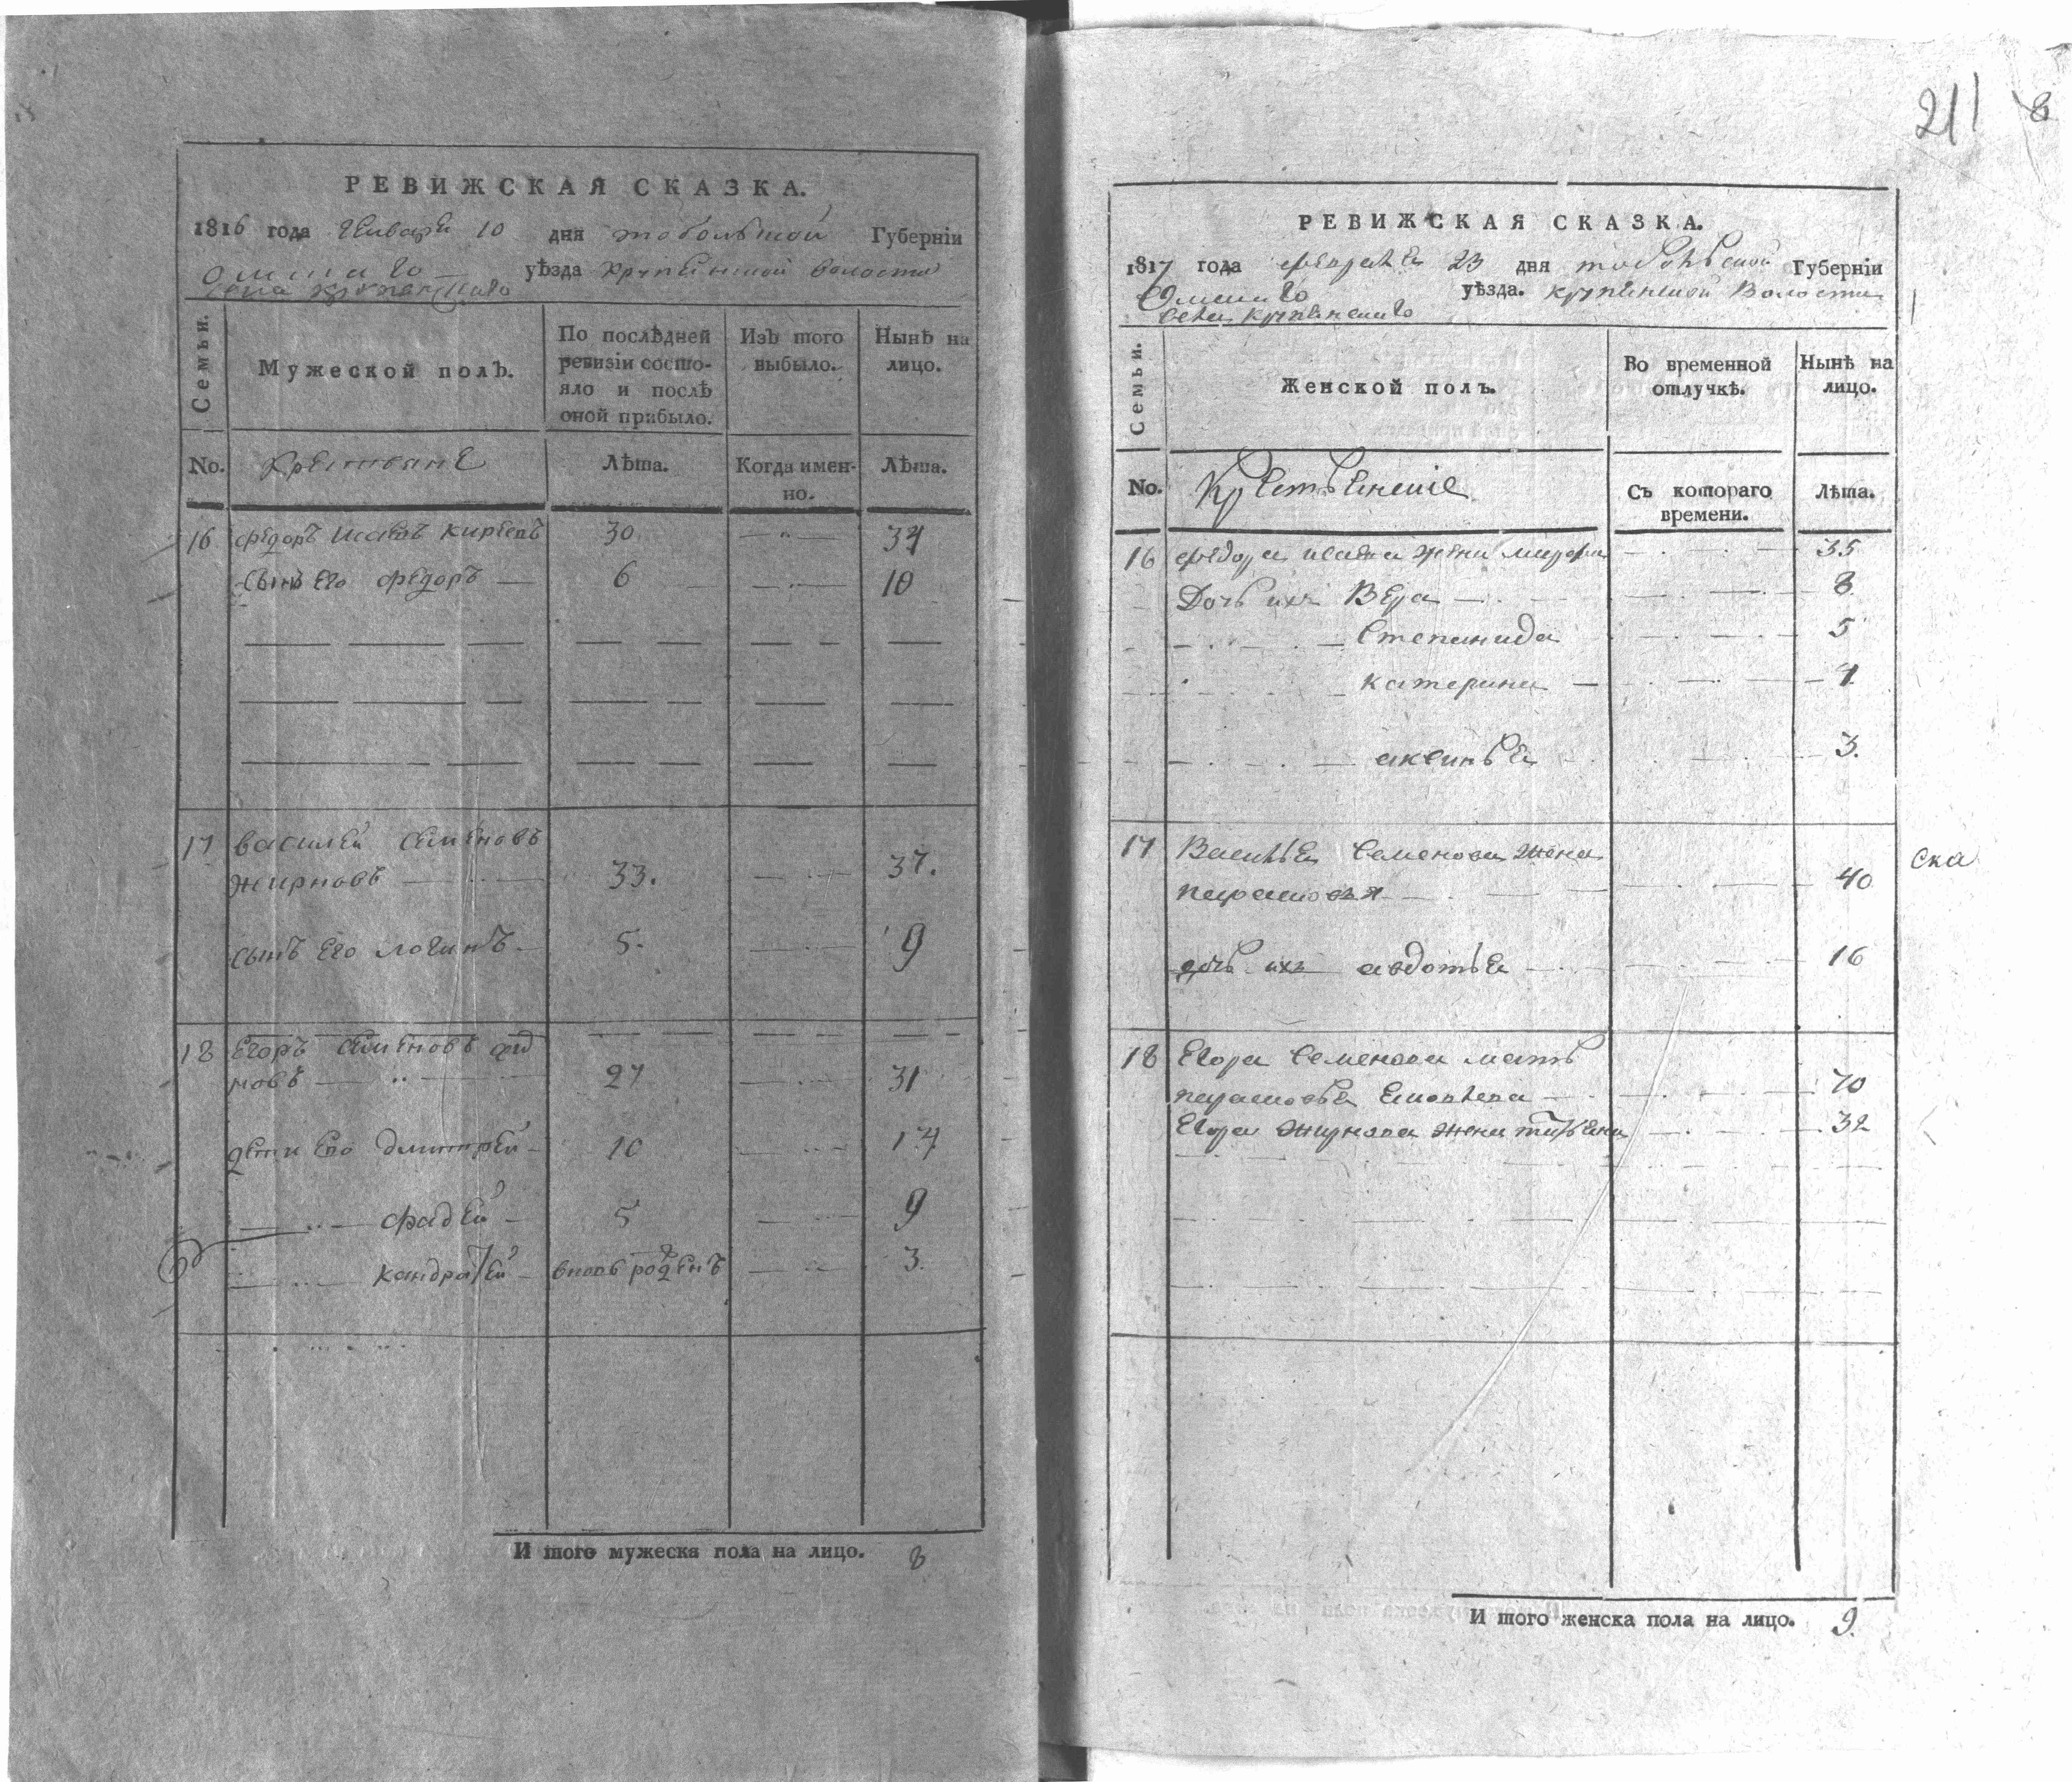 РЕВИЖСКАЯ СКАЗКА.
1816 года Генваря 10 дня тобольской Губерніи
Омскаго уѣзда крупенской волости
села крупенскаго
Семьи. Мужеской полъ. По послѣдней ревизіи состояло и послѣ оной прибыло. Изъ того выбыло. Нынѣ на лицо.
No. Крестьяне Лѣта. Когда именно. Лѣта.
16 Федоръ Исаевъ 30 34
сынъ его Федоръ 6 10
17 василей семеновъ
жирновъ 33. 37.
сынъ его логинъ 5. 9
18 Егоръ семеновъ
новъ 27 31
дети его дмитрей 10 14
фадей 5 9
кандратей вновь рожденъ 3.
И того мужеска пола на лицо. 8
211 8
РЕВИЖСКАЯ СКАЗКА.
1817 года февраля 23 дня тобольской Губерніи
Омскаго уѣзда. крупенской Волости
села крупенскаго
Семьи. Женской полъ. Во временной отлучкѣ. Нынѣ на лицо.
No. Крестьянскіе Съ котораго времени. Лѣта.
16 Федора исаева жена марфа 35
Дочь ихъ Вера 8
Степанида 5
катерина
аксинья 3.
17 Василья Семенова жена
парасковья 40
ска
дочь ихъ авдотья 16
18 Егора Семенова мать
парасковья 70
Егора жирнова жена татьяна 32
И того женска пола на лицо. 9.